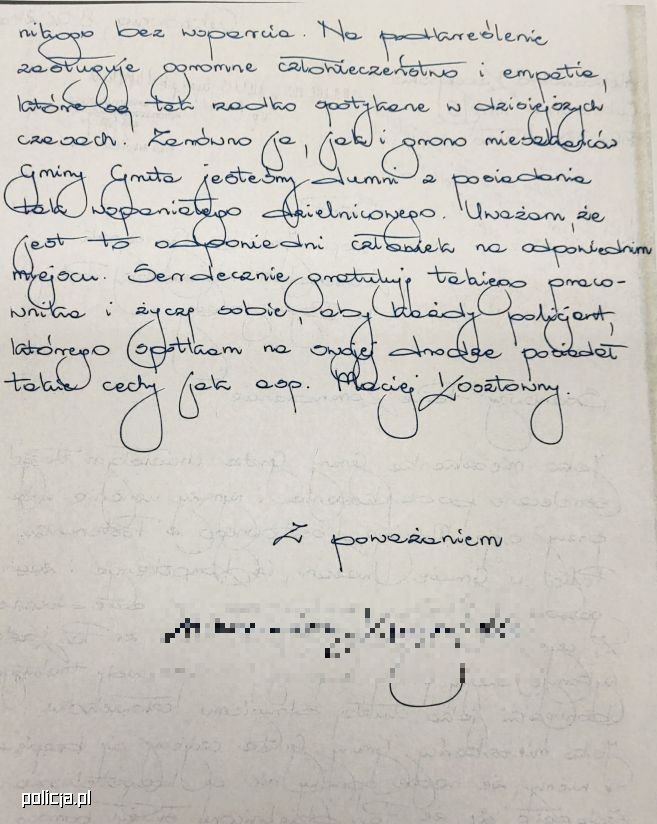 nikogo bez wsparcia. Na podkreślenie
zasługuje ogromne człowieczeństwo i empatia,
które są tak rzadko spotykane w dzisiejszych
czasach. Zarówno ja, jak i grono mieszkańców
Gminy Gnita jesteśmy dumni z posiadania
tak wspaniałego dzielnicowego. Uważam, że
jest to odpowiedni człowiek na odpowiednim
miejscu. Serdecznie gratuluję takiego praco-
wnika i życzę sobie, aby każdy policjant,
którego spotkam na swojej drodze posiadał
takie cechy jak asp. Maciej Kosztowny.
Z poważaniem
policja.pl